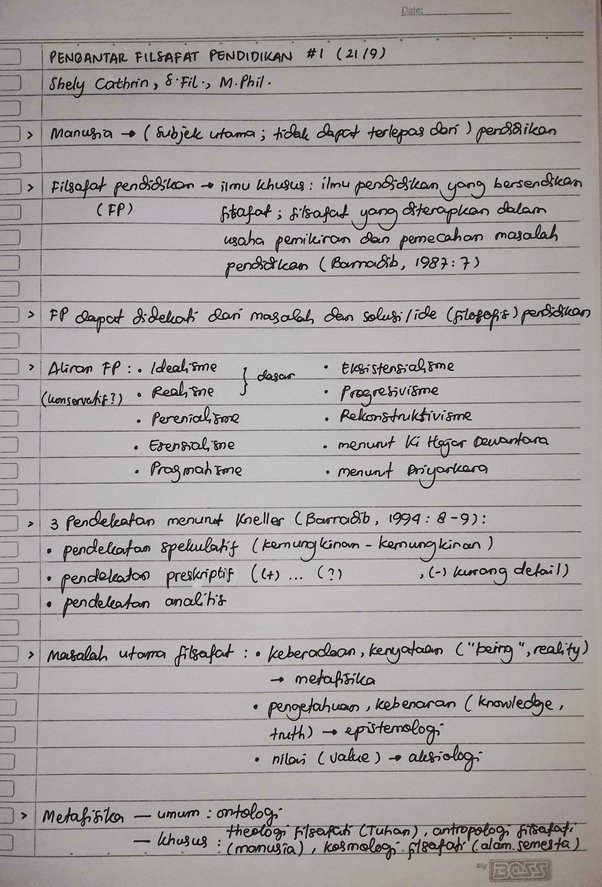 Date:
PENGANTAR FILSAFAT PENDIDIKAN #1 (21/9)
Shely Cathrin, S.Fil., M.Phil.
> Manusia → (subjek utama; tidak dapat terlepas dari) pendidikan
> Filsafat pendidikan → ilmu khusus: ilmu pendidikan yang bersendikan
(FP) filsafat; filsafat yang diterapkan dalam
usaha pemikiran dan pemecahan masalah
pendidikan (Barnadib, 1987:7)
> FP dapat didekati dari masalah dan solusi/ide (filosofis) pendidikan
> Aliran FP: • Idealisme } dasar • Eksistensialisme
(konservatif?) • Realisme • Progresivisme
• Perenialisme • Rekonstruktivisme
• Esensialisme • menurut Ki Hajar Dewantara
• Pragmatisme • menurut Driyarkara
> 3 Pendekatan menurut Kneller (Barnadib, 1994: 8-9):
• pendekatan spekulatif (kemungkinan-kemungkinan)
• pendekatan preskriptif ((+) ... (?) , (-) kurang detail)
• pendekatan analitis
> Masalah utama filsafat: • keberadaan, kenyataan ("being", reality)
→ metafisika
• pengetahuan, kebenaran (knowledge,
truth) → epistemologi
• nilai (value) → aksiologi
> Metafisika — umum: ontologi
— khusus: theologi filsafati (Tuhan), antropologi filsafati
(manusia), kosmologi filsafati (alam semesta)
by BOSS